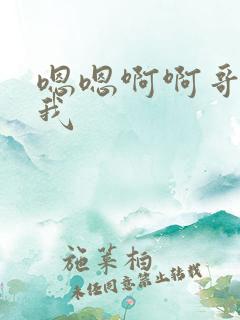 嗯嗯啊啊哥
我
施莱柏
未经同意禁止转载